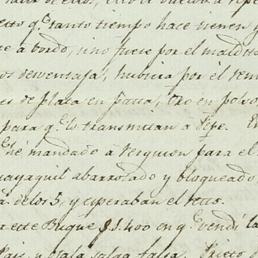 tanto tiempo hace tienen y
e a bordo, sino fuese por el maldito
os desventaja, hubiera por él
es de plata en pasta, oro en polvo,
para q.e lo transmitan a Pepe. E
he mandado a Ferguson para el
uayaquil abarrotado y bloqueado
a. de los 3, y esperaban el
este Buque $1.400 en q.e vendí la
País, y ojala salga falsa.